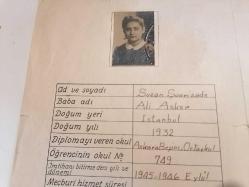 Ad ve soyadı Suzan Süerzade
Baba adı Ali Asker
Doğum yeri İstanbul
Doğum yılı 1932
Diplomayı veren okul Ankara Beşinci Ortaokul
Öğrencinin okul № 749
İmtihanı bitirme ders yılı ve dönemi 1945-1946 Eylül
Mecburî hizmet süresi